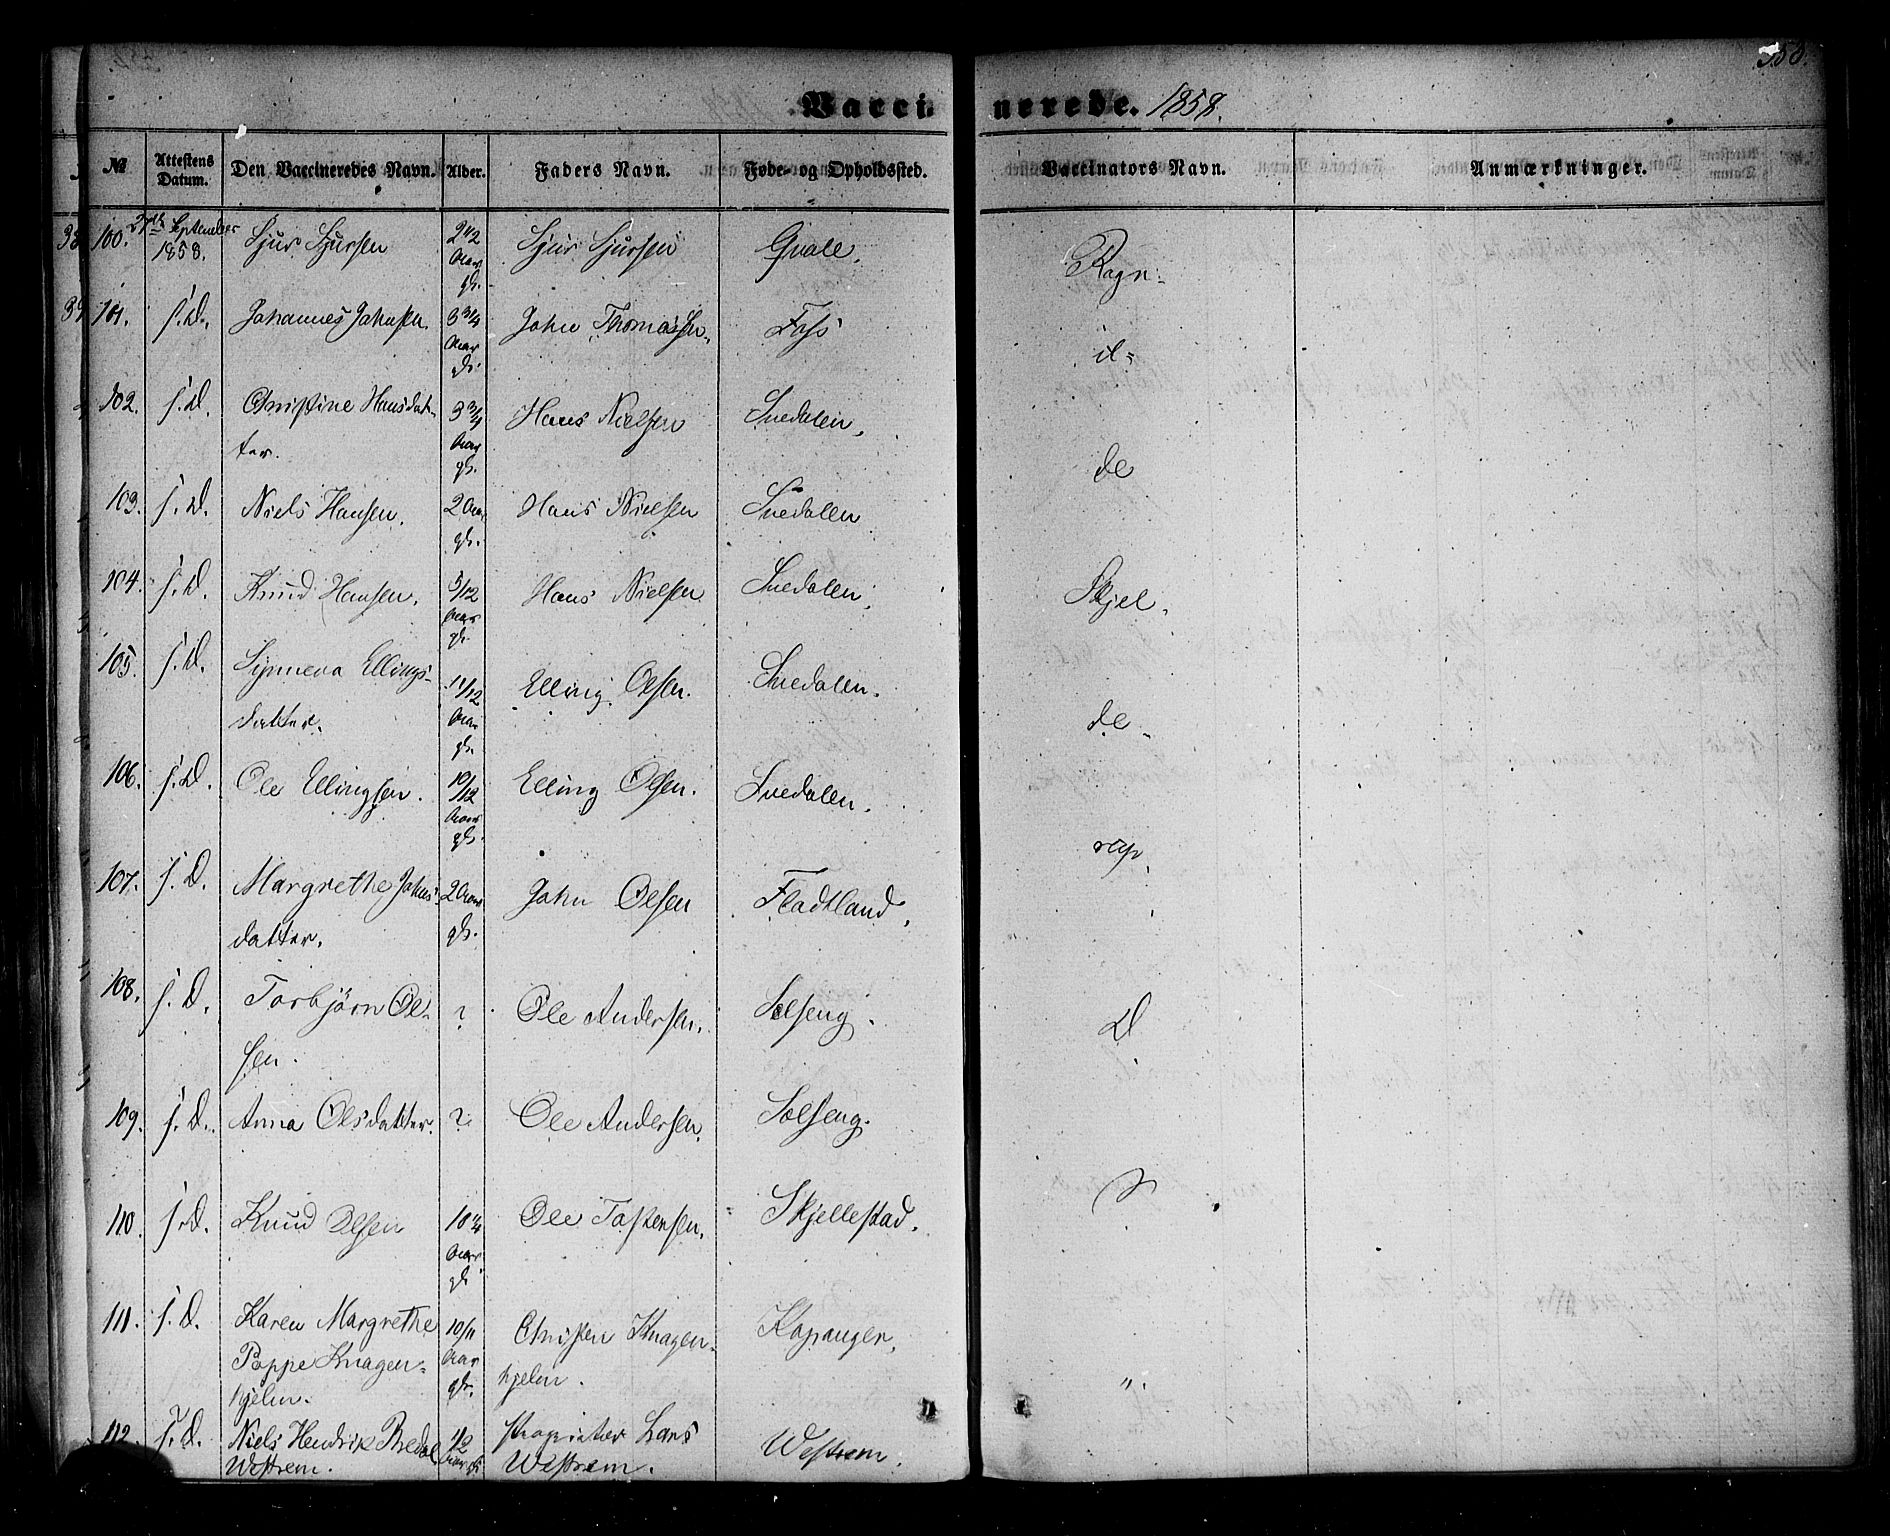 Vaccinerede. 1858.
№ Attestens Datum. Den Vaccineredes Navn. Alder. Faders Navn. Føde- og Opholdssted. Vaccinators Navn. Anmærkninger.
100. 27de September 1858. Sjur Sjursen 2 1/2 Aar gl. Sjur Sjursen Qvale. Ragn-
101. s. D. Johannes Johnsen. 3 3/4 Aar gl. John Thomassen. Foss il-
102. s. D. Christine Hansdat- 3 3/4 Aar gl. Hans Nielsen Snedalen. de
ter.
103. s. D. Niels Hansen. 2 Aar gl. Hans Nielsen Snedalen
104. s. D. Knud Hansen. 5/12 Aar gl. Hans Nielsen Snedalen. Skjel.
105. s. D. Synneva Ellings- 11/12 Aar gl. Elling Olsen. Snedalen. de
datter.
106. s. D. Ole Ellingsen. 10/12 Aar gl. Elling Olsen. Snedalen. rup
107. s. D. Margrethe Johns- 2 Aar gl. John Olsen Fladtland.
datter.
108. s. D. Torbjörn Ol- ? Ole Andersen. Sælseng.
sen.
109. s. D. Anna Olsdatter. ? Ole Andersen. Sælseng.
110. s. D. Knud Olsen 10 1/4 Aar gl. Ole Tostensen. Skjellestad.
111. s. D. Karen Margrethe 10/11 Aar gl. Christen Knagen- Kopanger. "
Poppe Knagen- hjelm.
hjelm.
112. s. D. Niels Hendrik Bredal 1/2 Aar gl. Proprietær Lars Westrem.
Westrem. Westrem.